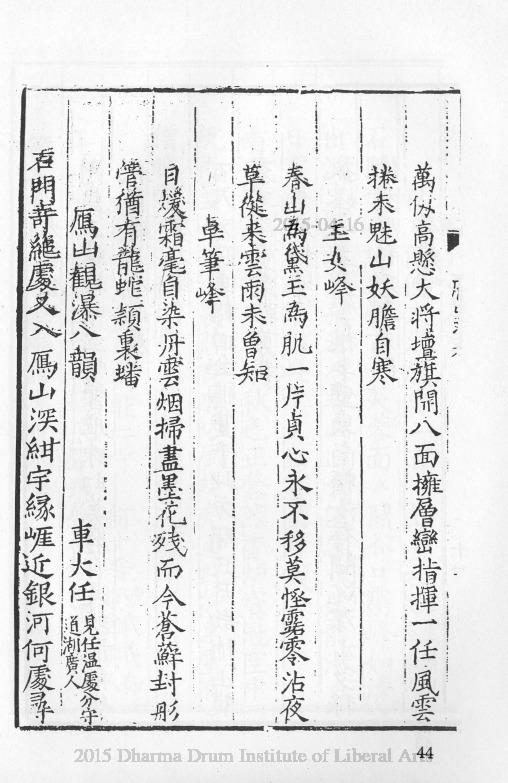 萬仞高懸大将壇旗開八面擁層巒指揮一任風雲
捲未魅山妖膽自寒
玉女峰
春山為黛玉為肌一片貞心永不移莫怪露零沾夜
草從来雲雨未曽知
卓筆峰
日煖霜毫自染丹雲烟掃盡墨花殘而今蒼蘚封彤
管猶有龍蛇頴裏蟠
鴈山觀瀑八韻 車大任 見任温處分守道湖廣人
石門竒絶處又入鴈山深紺宇緣崕近銀河何處尋
2015-04-16
2015 Dharma Drum Institute of Liberal Arts
44